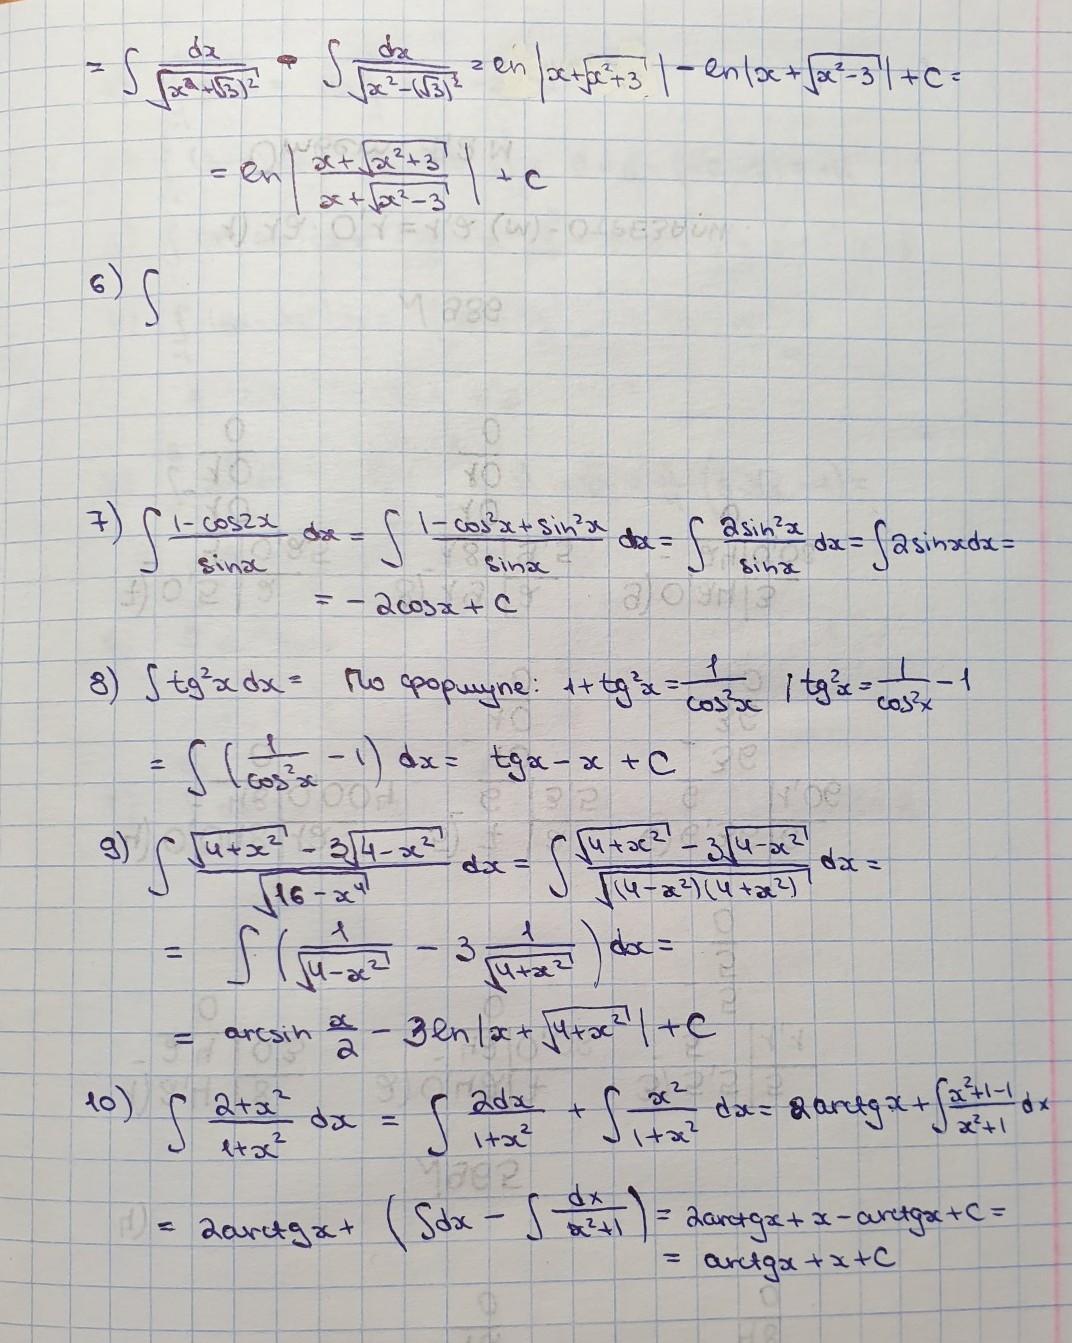 = ∫ dx/√(x²+(√3)²) - ∫ dx/√(x²-(√3)²) = ln|x+√(x²+3)| - ln|x+√(x²-3)| + C =
= ln|(x+√(x²+3))/(x+√(x²-3))| + C
6) ∫
7) ∫ (1-cos2x)/sinx dx = ∫ (1-cos²x+sin²x)/sinx dx = ∫ 2sin²x/sinx dx = ∫2sinxdx =
= -2cosx + C
8) ∫tg²x dx = По формуле: 1+tg²x = 1/cos²x ; tg²x = 1/cos²x - 1
= ∫(1/cos²x - 1) dx = tgx - x + C
9) ∫ (√(4+x²) - 3√(4-x²))/√(16-x⁴) dx = ∫ (√(4+x²) - 3√(4-x²))/√((4-x²)(4+x²)) dx =
= ∫(1/√(4-x²) - 3 1/√(4+x²)) dx =
= arcsin x/2 - 3ln|x+√(4+x²)| + C
10) ∫ (2+x²)/(1+x²) dx = ∫ 2dx/(1+x²) + ∫ x²/(1+x²) dx = 2arctgx + ∫(x²+1-1)/(x²+1) dx
= 2arctgx + (∫dx - ∫ dx/(x²+1)) = 2arctgx + x - arctgx + C =
= arctgx + x + C